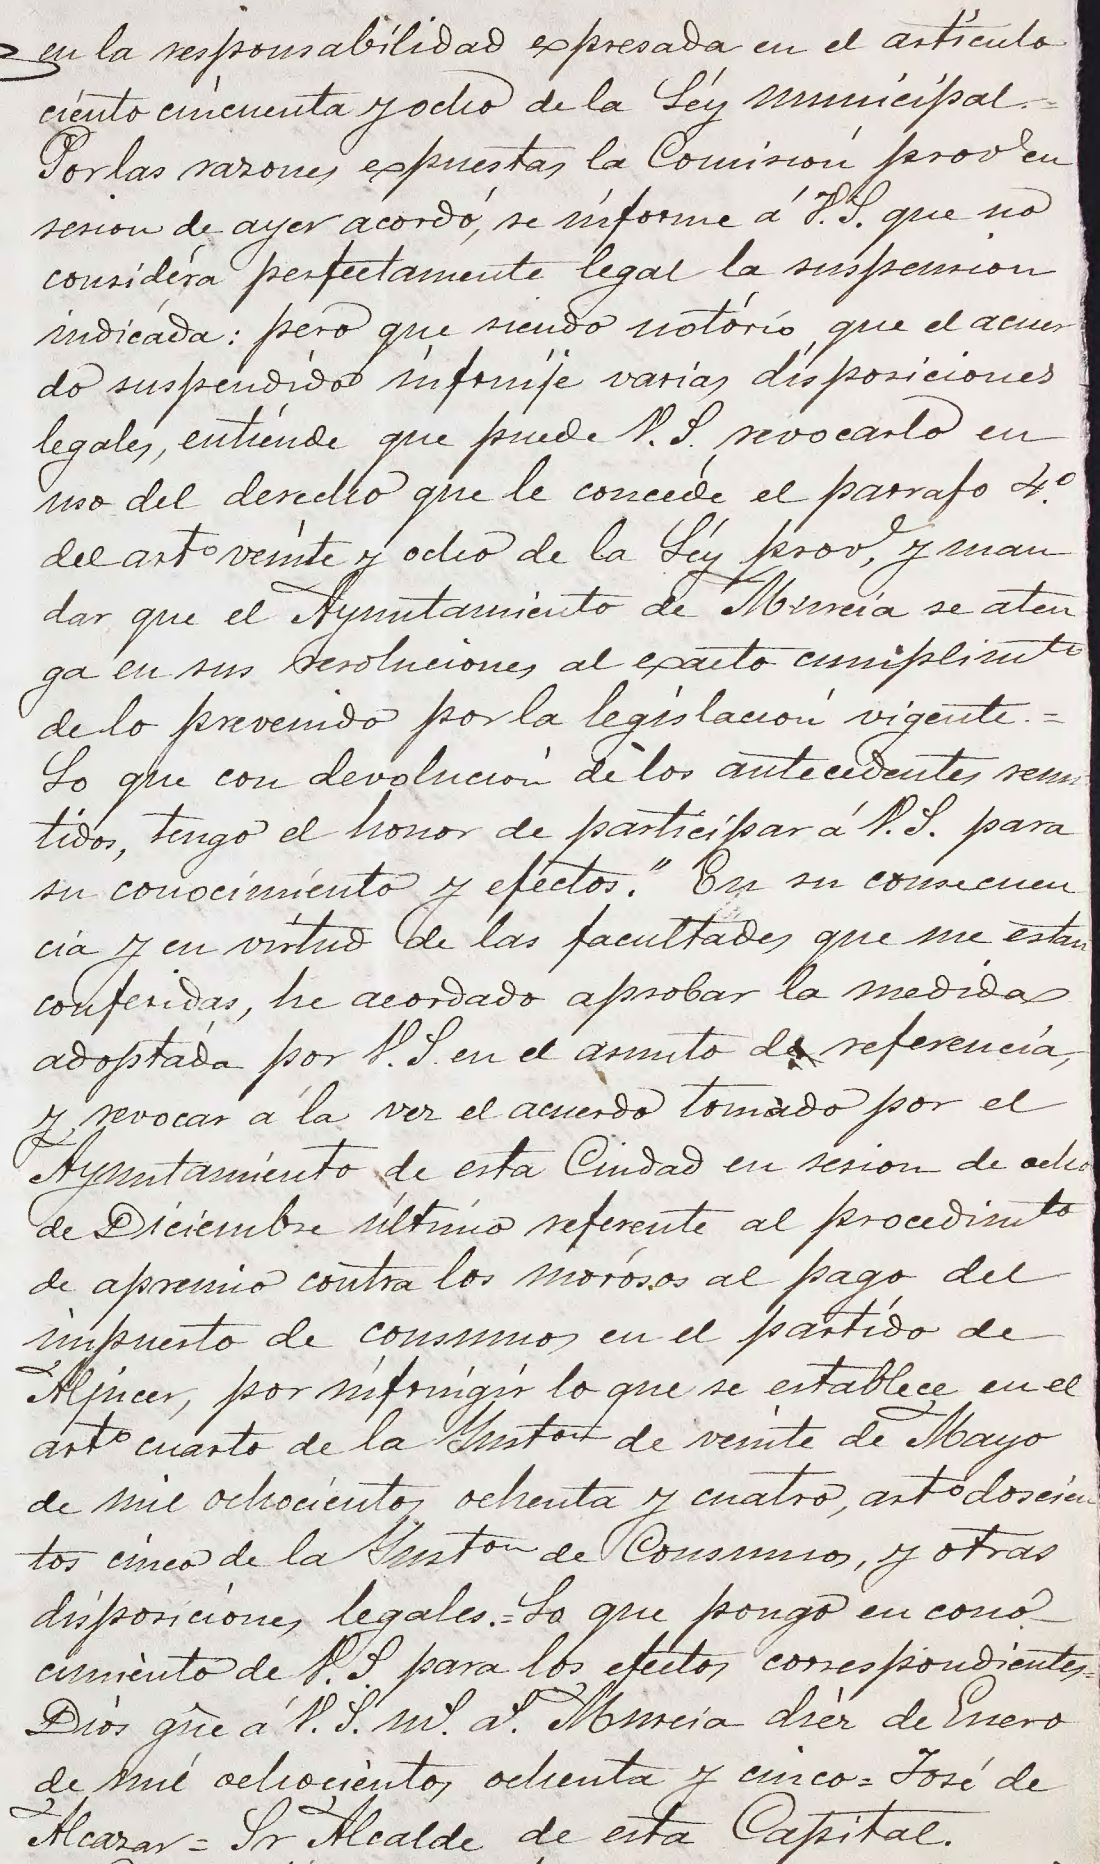 en la responsabilidad expresada en el artículo
ciento cincuenta y ocho de la Ley Municipal.=
Por las razones expuestas la Comisión prov.l en
sesion de ayer acordó, se informe á V.S. que no
considera perfectamente legal la suspension
indicada: pero que siendo notorio, que el acuer
do suspendido infrinje varias disposiciones
legales, entiende que puede V.S. revocarlo en
uso del derecho que le concede el parrafo 4.º
del art.º veinte y ocho de la Ley prov.l, y man
dar que el Ayuntamiento de Murcia se aten
ga en sus resoluciones al exacto cumplimto
de lo prevenido por la legislación vigente.=
Lo que con devolución de los antecedentes remi
tidos, tengo el honor de participar á V.S. para
su conocimiento y efectos." En su consecuen
cia y en virtud de las facultades que me estan
conferidas, he acordado aprobar la medida
adoptada por V.S. en el asunto de referencia,
y revocar á la vez el acuerdo tomado por el
Ayuntamiento de esta Ciudad en sesion de ocho
de Diciembre último referente al procedimto
de apremio contra los morosos al pago del
impuesto de consumos en el partido de
Aljucer, por infringir lo que se establece en el
artº cuarto de la Ynston de veinte de Mayo
de mil ochocientos ochenta y cuatro, artº doscien
tos cinco de la Ynston de Consumos, y otras
disposiciones legales.=Lo que pongo en cono-
cimiento de V.S para los efectos correspondientes=
Dios gue á V.S. m.s a.s Murcia diez de Enero
de mil ochocientos ochenta y cinco= José de
Alcazar= Sr Alcalde de esta Capital.